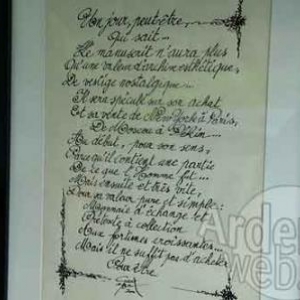 Un jour, peut-être,
Qui sait...
Le manuscrit n'aura plus
Qu'une valeur d'archives esthétique,
De vestige nostalgique...
Il sera spéculé sur son achat
Et sa vente de New-York à Paris,
De Moscou à Pékin...
Au début, pour son sens,
Parce qu'il contient une partie
De ce que l'Homme fit...
Mais ensuite et très vite,
Pour sa valeur pure et simple:
Monnaie d'échange et
Prétexte à collection
Aux fortunes croissantes...
Mais il ne suffit pas d'acheter
Pour être
Arde
web